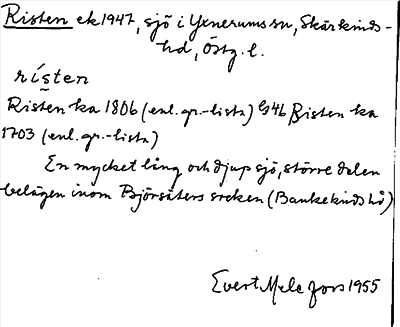 Risten ek 1947, sjö i Yxnerums sn, Skärkinds-
hd, Östg. l.
rísten
Risten ka 1806 (enl. gr.-lista) G46 Risten ka
1703 (enl. gr.-lista)
En mycket lång och djup sjö, större delen
belägen inom Björsäters socken (Bankekinds hd)
Evert Melefors 1955